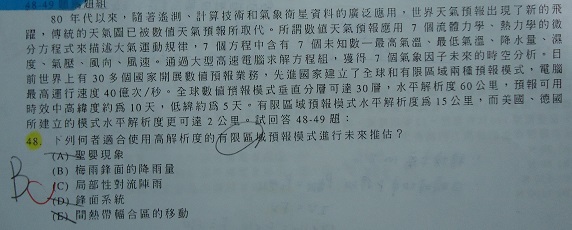 48-49 題為題組
80 年代以來，隨著遙測、計算技術和氣象衛星資料的廣泛應用，世界天氣預報出現了新的飛
躍，傳統的天氣圖已被數值天氣預報所取代。所謂數值天氣預報應用 7 個流體力學、熱力學的微
分方程式來描述大氣運動規律，7 個方程中含有 7 個未知數—最高氣溫、最低氣溫、降水量、濕
度、氣壓、風向、風速。通過大型高速電腦求解方程組，獲得 7 個氣象因子未來的時空分。目
前世界上有 30 多個國家開展數值預報業務，先進國家建立了全球和有限區域兩種預報模式，電腦
最高運行速度 40 億次/秒。全球數值預報模式垂直分層可達 30 層，水平解析度 60 公里，預報可用
時效中高緯度約為 10 天，低緯約為 5 天。有限區域預報模式水平解析度為 15 公里，而美國、德國
所建立的模式水平解析度更可達 2 公里。試回答 48-49 題：
48. 下列何者適合使用高解析度的有限區域預報模式進行未來推估？
(A) 聖嬰現象
(B) 梅雨鋒面的降雨量
(C) 局部性對流陣雨
(D) 鋒面系統
(E) 間熱帶輻合區的移動
B
C